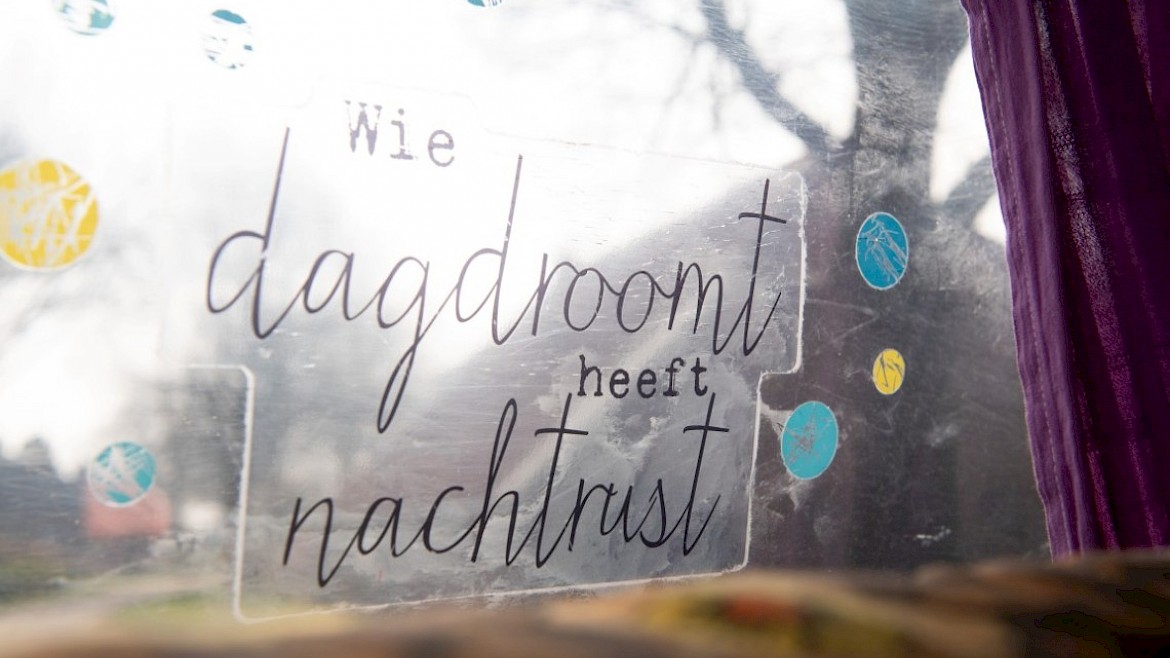 Wie
dagdroomt
heeft
nachtrust